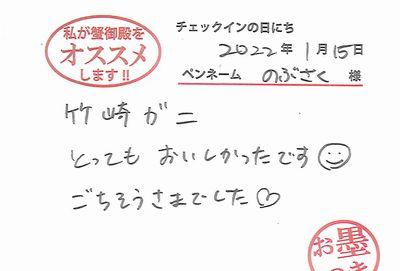 私が蟹御殿を
オススメ
します!!
チェックインの日にち
2022年1月15日
ペンネーム のぶさく 様
竹崎ガニ
とっても おいしかったです☺
ごちそうさまでした♡
お墨